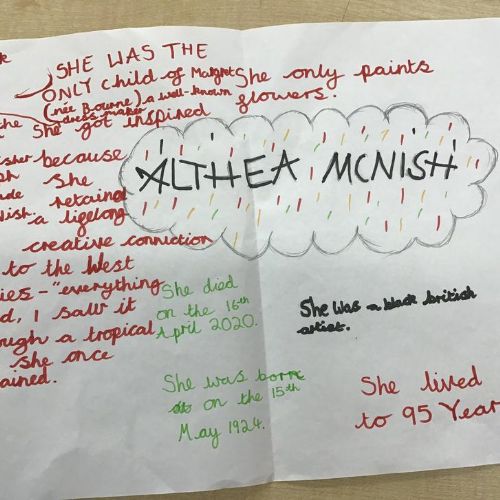 SHE WAS THE
ONLY child of Margret
(née Bourne) a well-known
dress maker
She only paints
flowers.
ALTHEA MCNISH
the She got inspired
because
She
retained
a lifelong
creative conviction
to the West
ies - "everything
d, I saw it
ough a tropical
she once
ained.
She died
on the 16th
April 2020.
She was born
on the 15th
May 1924.
She was a black british
artist.
She lived
to 95 Year